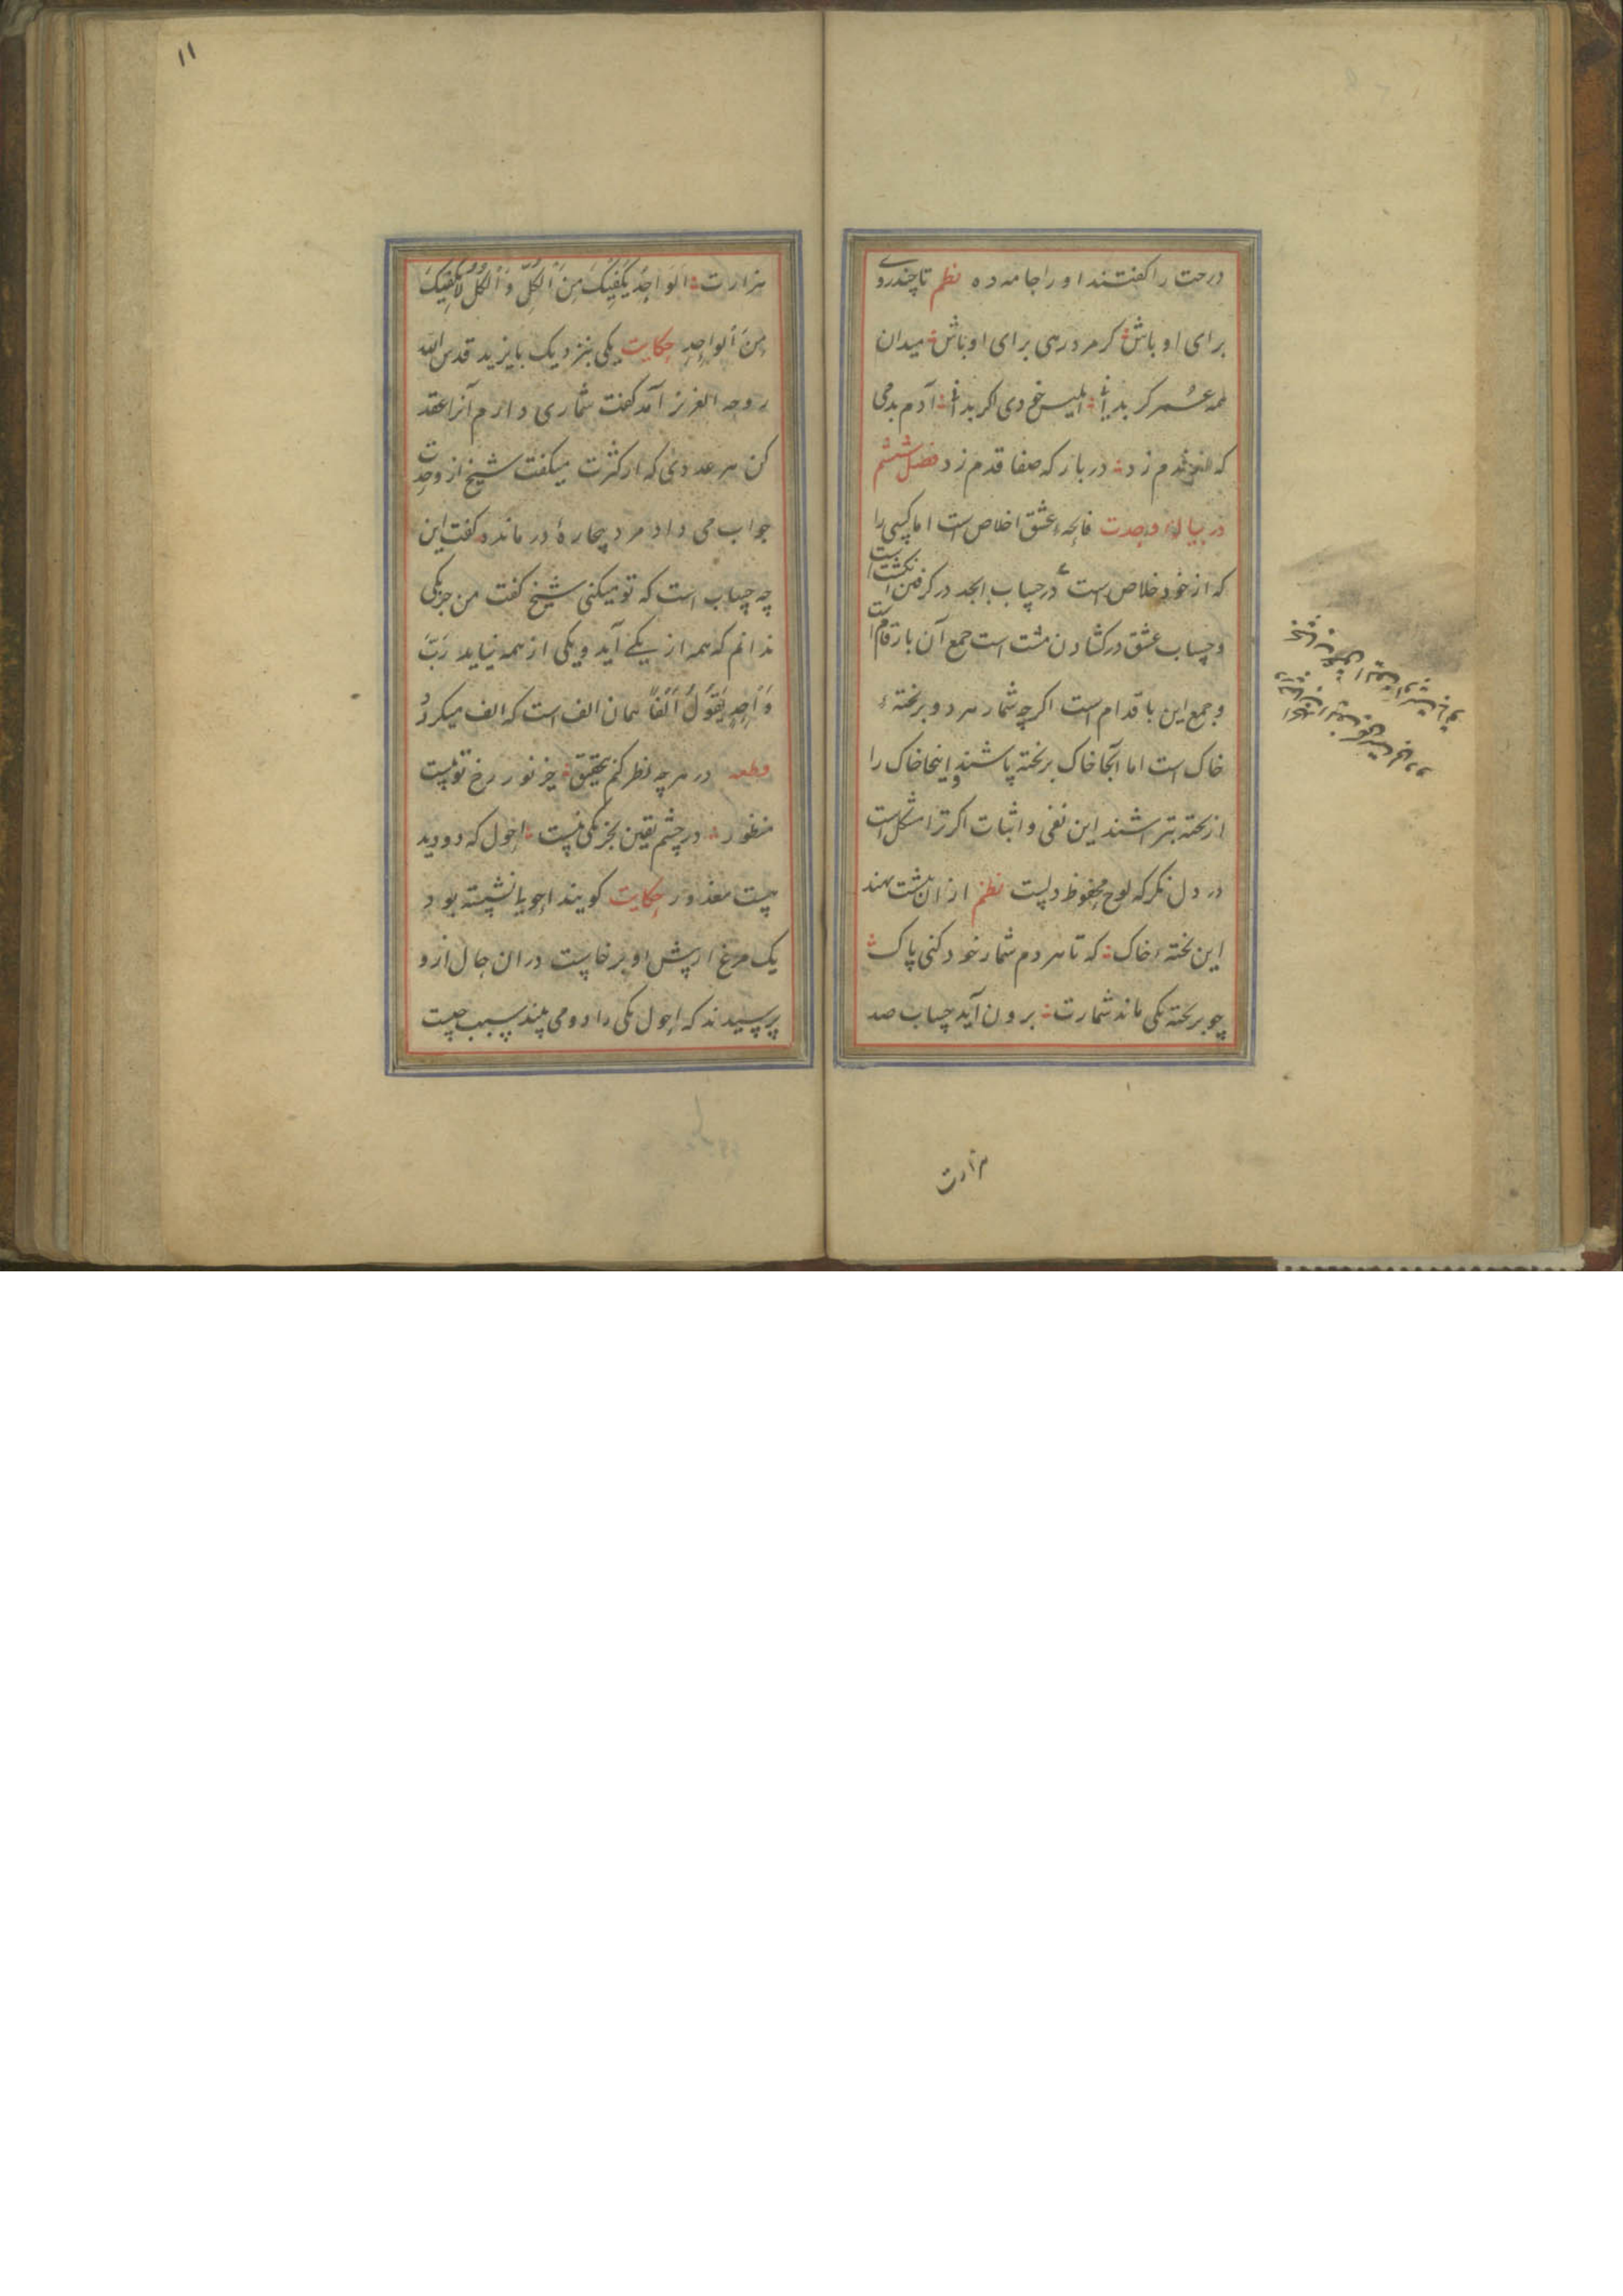 درخت را گفتند او را جامه ده نظم تا چند روی
برای اوباش گر مرد رهی برای او باش میدان
همه عمر گر بد ابا ابلیس خودی اگر بد ابا آدم بدمی
که دم زد در بارگه صفا قدم زد فصل ششم
در بیان وحدت فاتحهٔ عشق اخلاص است اما کسی را
که از خود خلاص است در حساب ابجد در گرفتن انگشت است
و حساب عشق در گشادن مشت است جمع آن بارقام است
و جمع این باقدام است اگرچه شمار هر دو بر تختهٔ
خاک است اما آنجا خاک بر تخته پاشند و اینجا خاک را
از تخته بتراشند این نفی و اثبات اگر ترا مشکل است
در دل نگر که لوح محفوظ دلست نظم از ان پشت نهند
این تختهٔ خاک که تا هر دم شمار خود کنی پاک
چو بر تخته یکی ماند شمارت برون آید حساب صد
هزارت
۱۱
هزارت اَلْوَاحِدُ يَكْفِيكَ مِنَ الْكُلِّ وَالْكُلُّ لَا يَكْفِيكَ
مِنَ الْوَاحِدِ حکایت یکی بنزدیک بایزید قدس الله
روحه العزیز آمد گفت شماری دارم آنرا عقد
کن هر عددی که از کثرت میگفت شیخ از وحدت
جواب می داد مرد بیچاره درمانده گفت این
چه حساب است که تو میکنی شیخ گفت من جز یکی
ندانم که همه از یکی آید و یکی از همه نیاید رُبَّ
وَاحِدٍ يَقُولُ أَلْفًا همان الف است که الف میگردد
قطعه در هر چه نظر کنم بتحقیق جز نور رخ تو نیست
منظور در چشم یقین بجز یکی نیست احول که دو دید
هست معذور حکایت گویند احولی نشسته بود
یک مرغ از پیش او برخاست در ان حال ازو
پرسیدند که احول یکی را دو می بیند سبب چیست